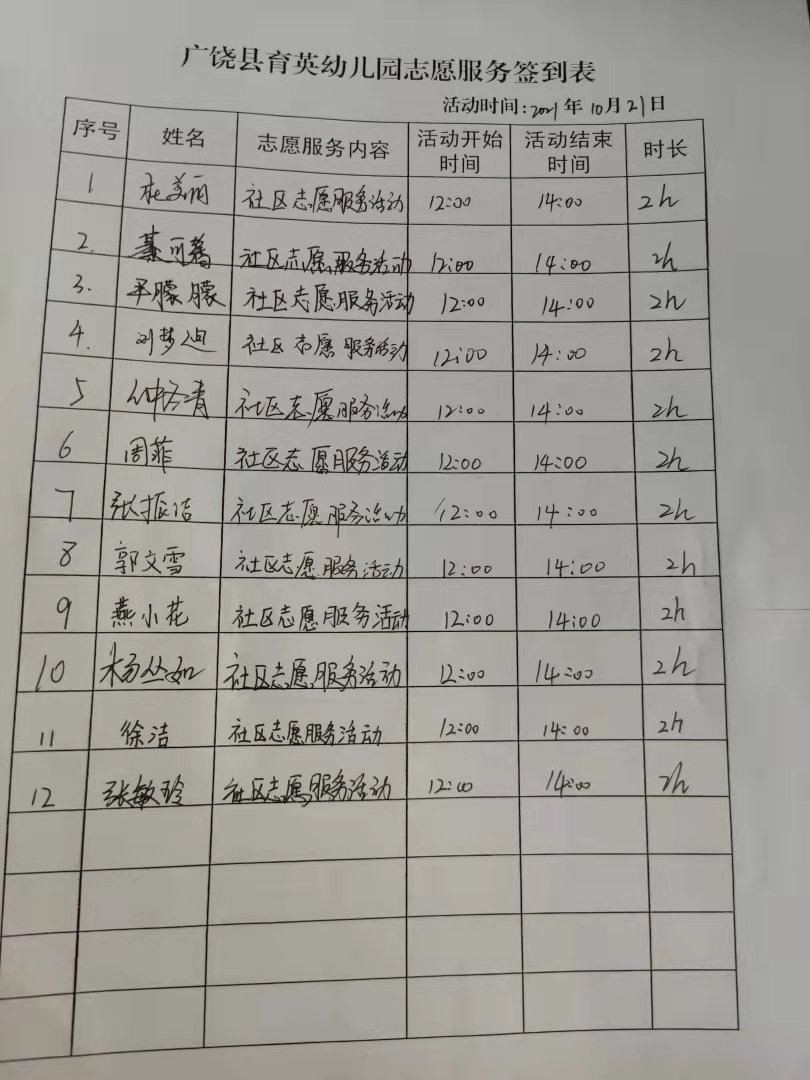 广饶县育英幼儿园志愿服务签到表
活动时间:2021年10月21日
序号 姓名 志愿服务内容 活动开始时间 活动结束时间 时长
1. 杜美丽 社区志愿服务活动 12:00 14:00 2h
2. 社区志愿服务活动 12:00 14:00 2h
3. 朦朦 社区志愿服务活动 12:00 14:00 2h
4. 刘梦迪 社区志愿服务活动 12:00 14:00 2h
5 社区志愿服务活动 12:00 14:00 2h
6 周菲 社区志愿服务活动 12:00 14:00 2h
7 张振洁 社区志愿服务活动 12:00 14:00 2h
8 郭文雪 社区志愿服务活动 12:00 14:00 2h
9 燕小花 社区志愿服务活动 12:00 14:00 2h
10 杨丛如 社区志愿服务活动 12:00 14:00 2h
11 徐洁 社区志愿服务活动 12:00 14:00 2h
12 张敏玲 社区志愿服务活动 12:00 14:00 2h